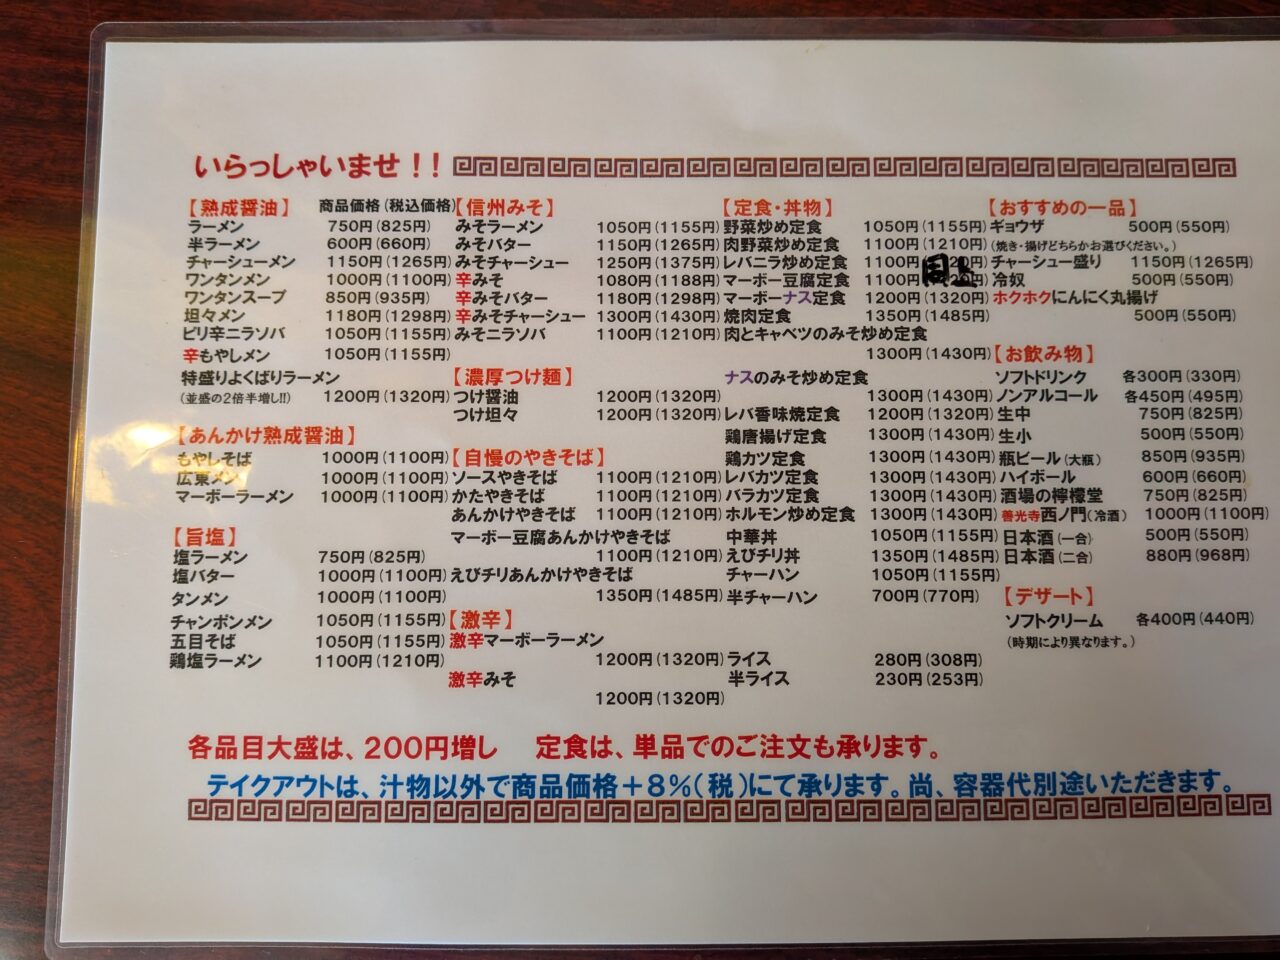 いらっしゃいませ！！
【熟成醤油】 商品価格(税込価格)
ラーメン 750円(825円)
半ラーメン 600円(660円)
チャーシューメン 1150円(1265円)
ワンタンメン 1000円(1100円)
ワンタンスープ 850円(935円)
坦々メン 1180円(1298円)
ピリ辛ニラソバ 1050円(1155円)
辛もやしメン 1050円(1155円)
特盛りよくばりラーメン
(並盛の2倍半増し!!) 1200円(1320円)
【あんかけ熟成醤油】
もやしそば 1000円(1100円)
広東メン 1000円(1100円)
マーボーラーメン 1000円(1100円)
【旨塩】
塩ラーメン 750円(825円)
塩バター 1000円(1100円)
タンメン 1000円(1100円)
チャンポンメン 1050円(1155円)
五目そば 1050円(1155円)
鶏塩ラーメン 1100円(1210円)
【信州みそ】
みそラーメン 1050円(1155円)
みそバター 1150円(1265円)
みそチャーシュー 1250円(1375円)
辛みそ 1080円(1188円)
辛みそバター 1180円(1298円)
辛みそチャーシュー 1300円(1430円)
みそニラソバ 1100円(1210円)
【濃厚つけ麺】
つけ醤油 1200円(1320円)
つけ坦々 1200円(1320円)
【自慢のやきそば】
ソースやきそば 1100円(1210円)
かたやきそば 1100円(1210円)
あんかけやきそば 1100円(1210円)
マーボー豆腐あんかけやきそば
1100円(1210円)
えびチリあんかけやきそば
1350円(1485円)
【激辛】
激辛マーボーラーメン
1200円(1320円)
激辛みそ
1200円(1320円)
【定食・丼物】
野菜炒め定食 1050円(1155円)
肉野菜炒め定食 1100円(1210円)
レバニラ炒め定食 1100円
マーボー豆腐定食 1100円
同上
マーボーナス定食 1200円(1320円)
焼肉定食 1350円(1485円)
肉とキャベツのみそ炒め定食
1300円(1430円)
ナスのみそ炒め定食
1300円(1430円)
レバ香味焼定食 1200円(1320円)
鶏唐揚げ定食 1300円(1430円)
鶏カツ定食 1300円(1430円)
レバカツ定食 1300円(1430円)
バラカツ定食 1300円(1430円)
ホルモン炒め定食 1300円(1430円)
中華丼 1050円(1155円)
えびチリ丼 1350円(1485円)
チャーハン 1050円(1155円)
半チャーハン 700円(770円)
ライス 280円(308円)
半ライス 230円(253円)
【おすすめの一品】
ギョウザ 500円(550円)
(焼き・揚げどちらかお選びください。)
チャーシュー盛り 1150円(1265円)
冷奴 500円(550円)
ホクホクにんにく丸揚げ
500円(550円)
【お飲み物】
ソフトドリンク 各300円(330円)
ノンアルコール 各450円(495円)
生中 750円(825円)
生小 500円(550円)
瓶ビール(大瓶) 850円(935円)
ハイボール 600円(660円)
酒場の檸檬堂 750円(825円)
善光寺西ノ門(冷酒) 1000円(1100円)
日本酒(一合) 500円(550円)
日本酒(二合) 880円(968円)
【デザート】
ソフトクリーム 各400円(440円)
(時期により異なります。)
各品目大盛は、200円増し 定食は、単品でのご注文も承ります。
テイクアウトは、汁物以外で商品価格＋8％(税)にて承ります。尚、容器代別途いただきます。